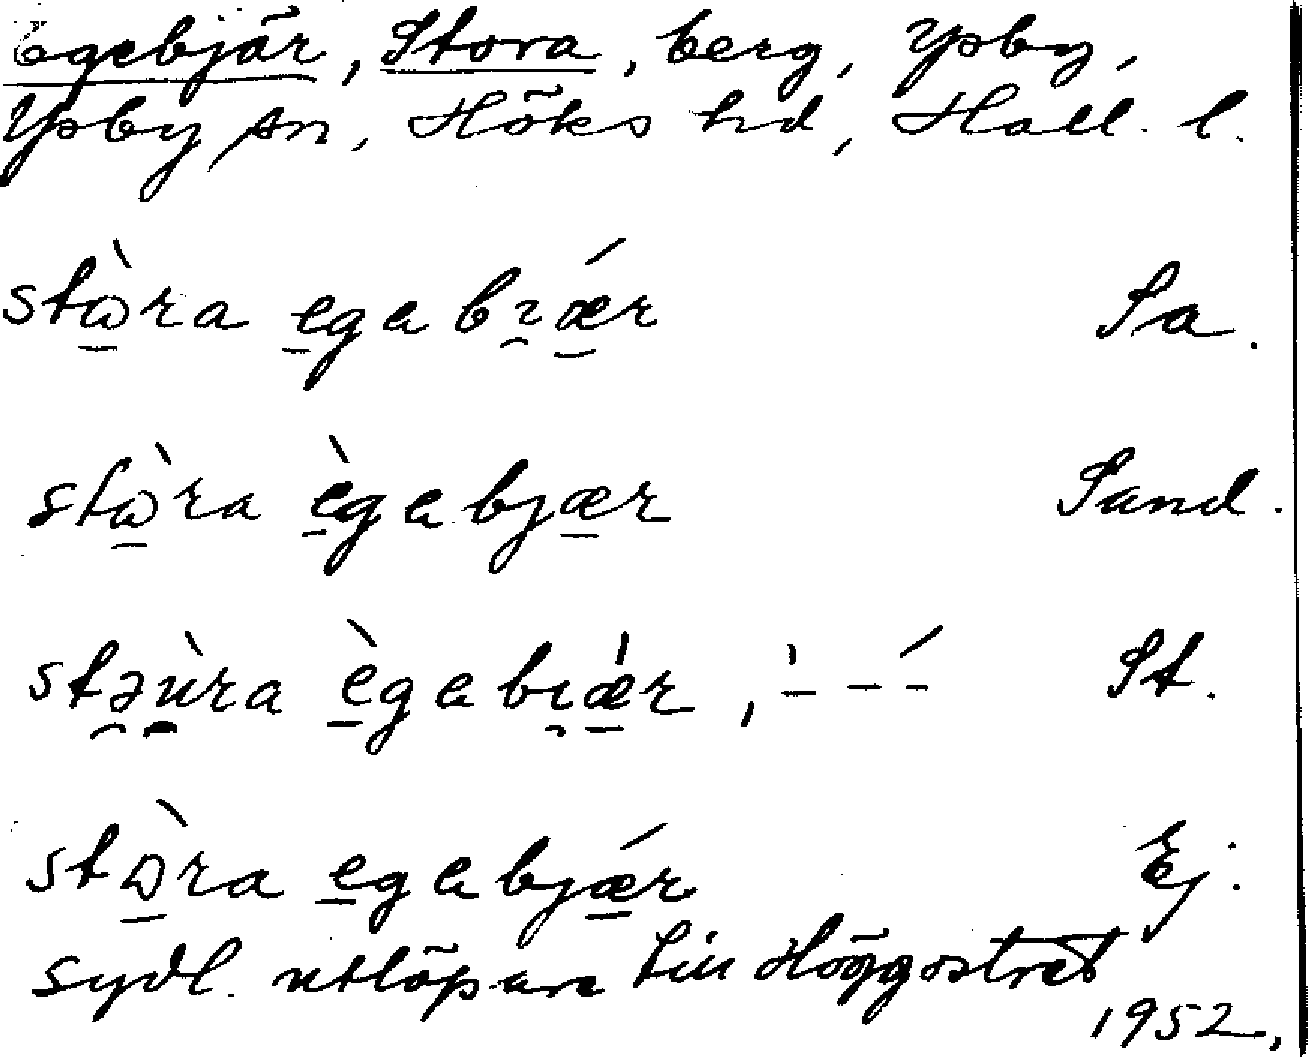 Egebjär, Stora, berg, Ysby,
Ysby sn, Höks hd, Hall. l.
stɷ̀ra egabɪǽr Sa.
stɷ̀ra ègabjær Sand.
stəùra ègabɪæ̍r, ̍– – –́ St.
stɷ̀ra egabjǽr Ej.
sydl. utlöpare till Höggostret
1952.